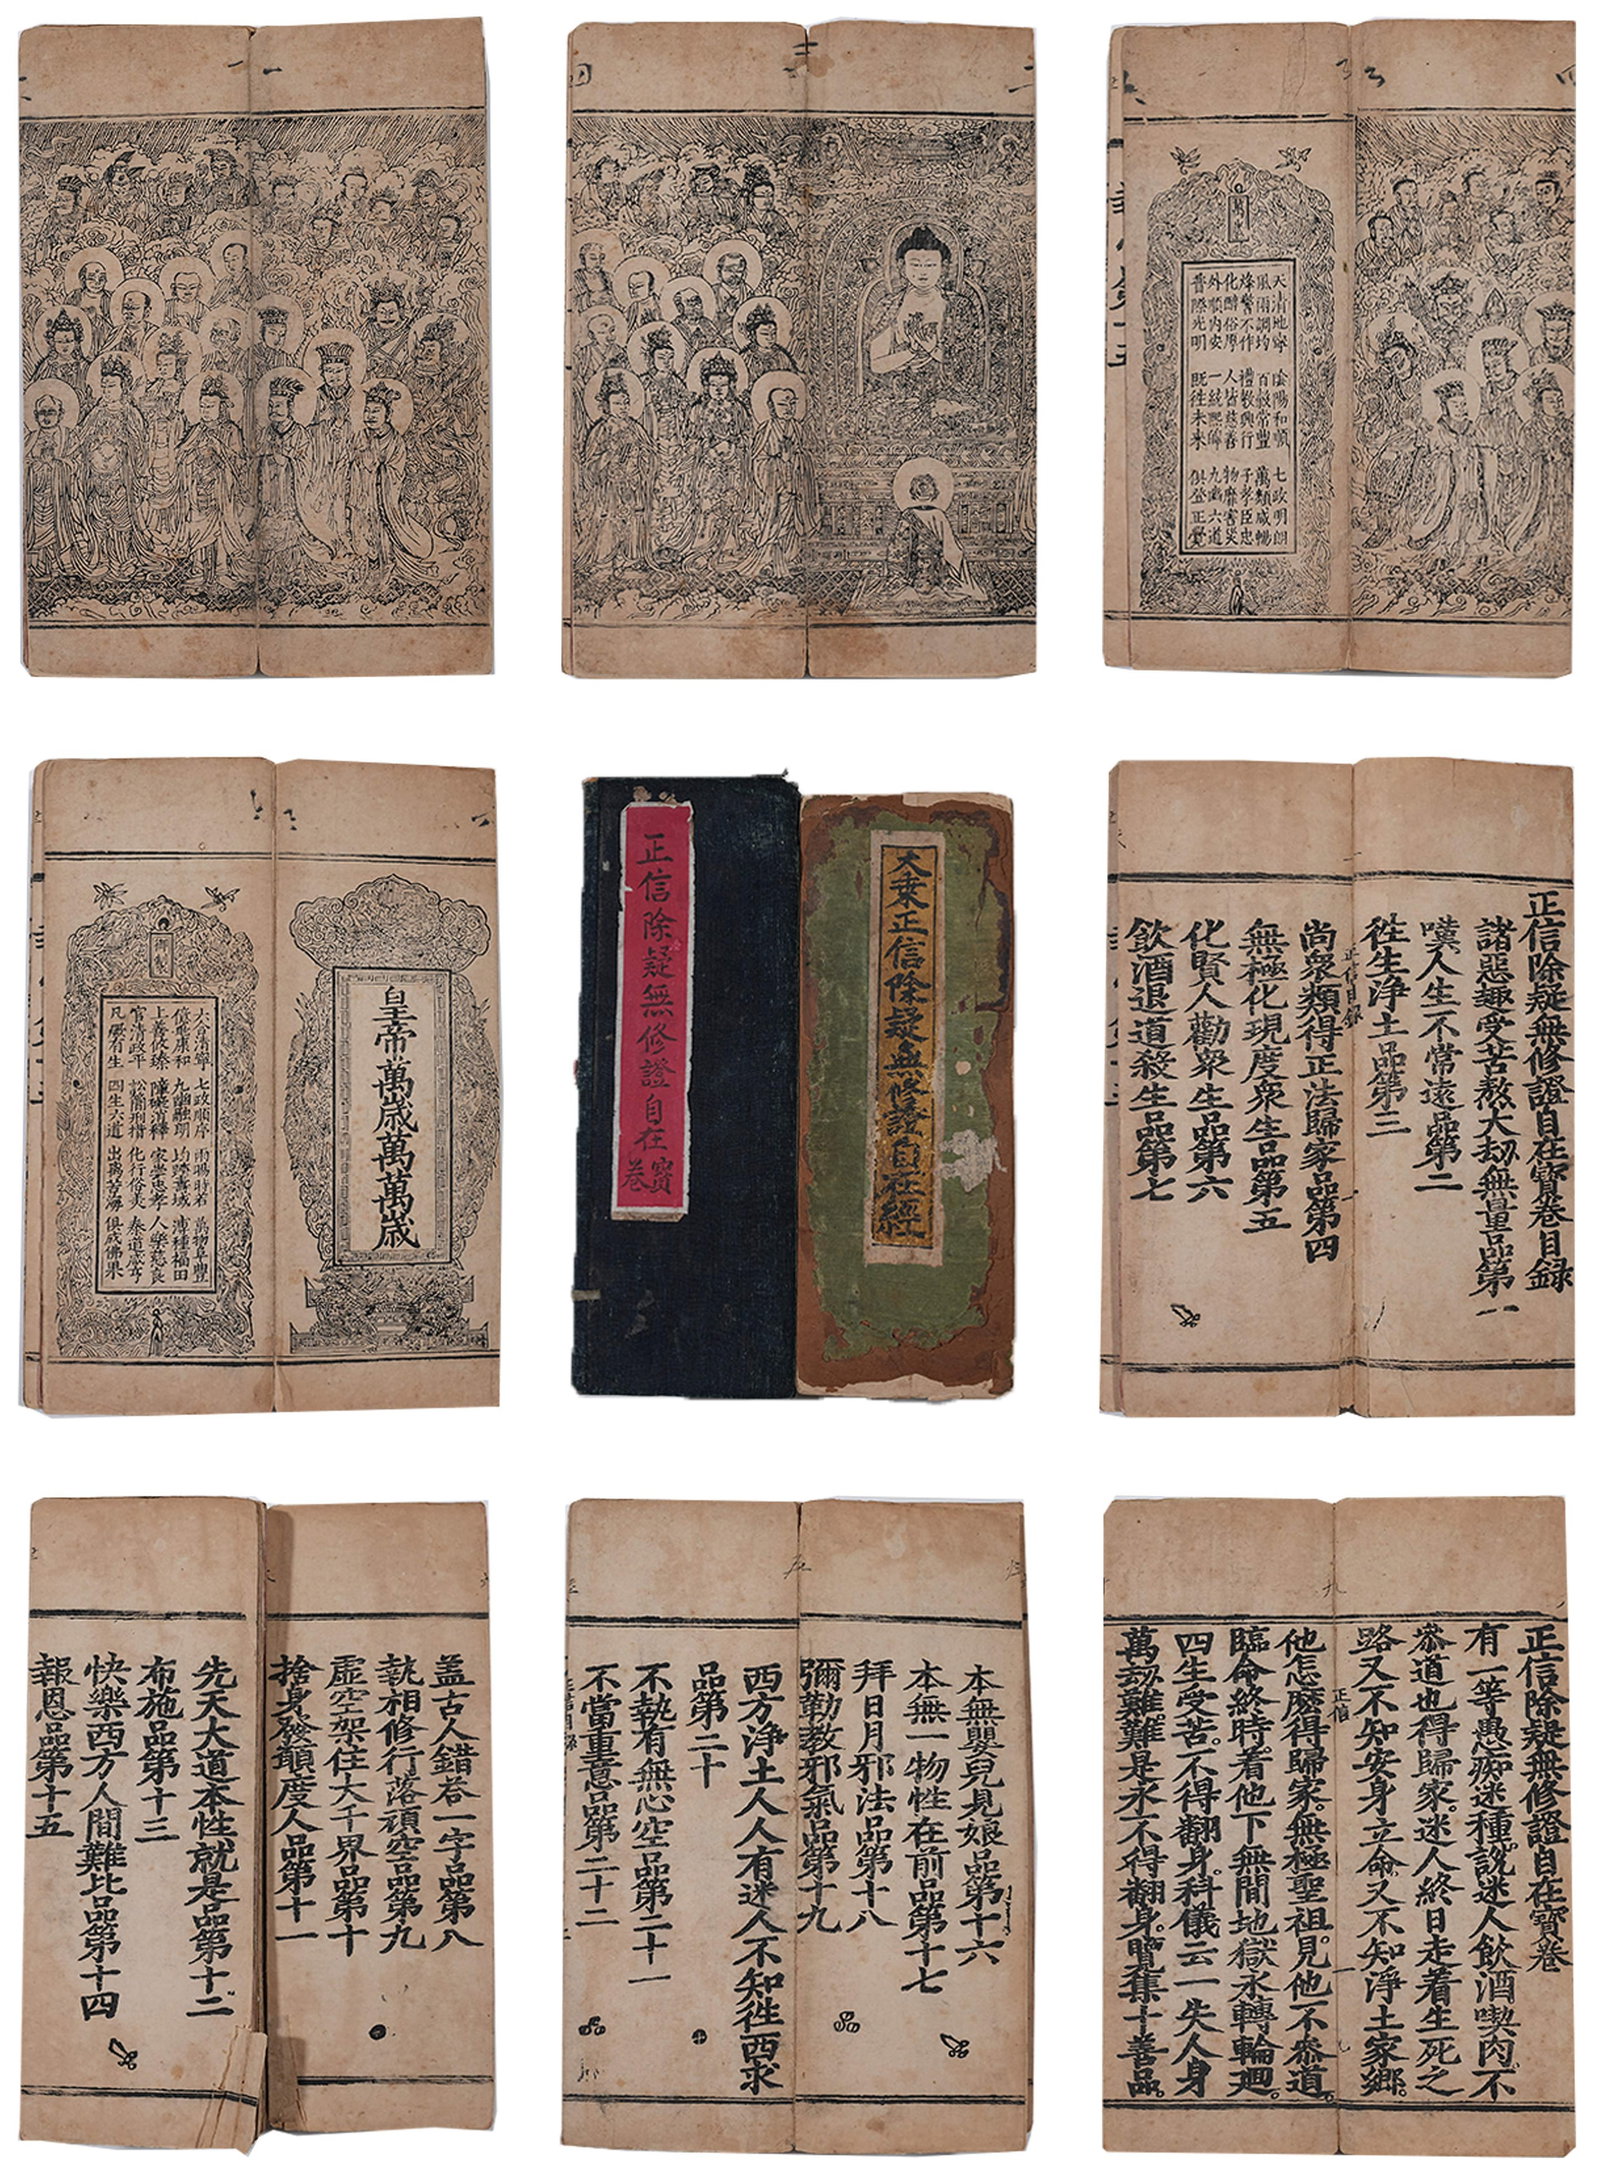 萬歲
天清地寧 陰陽和順 七政明朗
風雨調均 百穀常豐 萬類咸暢
烽警不作 禮教興行 子孝臣忠
化醇俗厚 人皆慈善 物靡害災
外順內安 一統熙皞 九幽六道
普際光明 既徃未来 俱登正覺
皇帝萬歲萬萬歲
御製
六合清寧 七政順序 雨暘時若 萬物阜豐
億兆康和 九幽融朗 均躋壽域 溥種福田
上善攸臻 障礙消釋 家崇忠孝 人樂慈良
官清政平 訟簡刑措 化行俗美 泰道咸亨
凡厥有生 四生六道 出離苦海 俱成佛果
正信除疑無修證自在寶卷
大乗正信除疑無修證自在經
正信除疑無修證自在寶卷目録
諸惡趣受苦熬大刼無量品第一
嘆人生不常遠品第二
徃生浄土品第三
尚衆類得正法歸家品第四
無極化現度衆生品第五
化賢人勸衆生品第六
飲酒退道殺生品第七
正信目録
盖古人錯荅一字品第八
執相修行落頑空品第九
虚空架住大千界品第十
捨身發願度人品第十一
先天大道本性就是品第十二
布施品第十三
快樂西方人間難比品第十四
報恩品第十五
本無嬰兒見娘品第十六
本無一物性在前品第十七
拜日月邪法品第十八
彌勒教邪氣品第十九
西方浄土人人有迷人不知徃西求
品第二十
不執有無心空品第二十一
不當重意品第二十二
正信除疑無修證自在寶卷
有一等愚痴迷種。說迷人飲酒喫肉。不
叅道也得歸家。迷人終日走着生死之
路又不知安身立命。又不知浄土家鄉。
他怎麽得歸家。無極聖祖。見他不叅道。
臨命終時。着他下無間地獄永轉輪廻。
四生受苦。不得翻身。科儀云一失人身
萬刼難。難是永不得翻身。覽集十善品。
正信